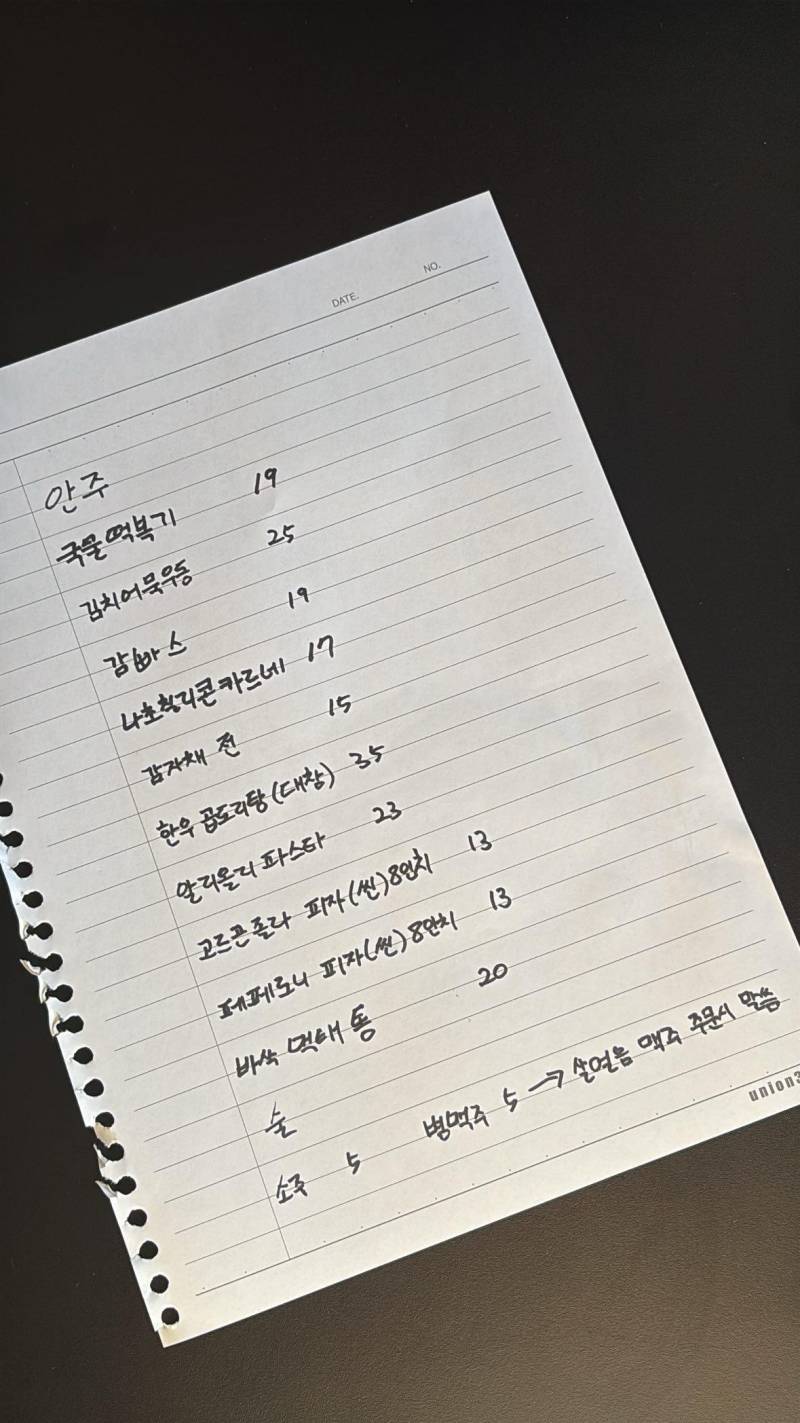 DATE. NO.
안주
국물떡복기 19
김치어묵우동 25
감빠스 19
나초칠리콘카르네 17
감자채 전 15
한우곱도리탕(대창) 35
알리올리 파스타 23
고르곤졸라 피자(씬)8인치 13
페페로니 피자(씬)8인치 13
바싹 먹태 통 20
술
소주 5 병맥주 5 → 살얼음 맥주 주문시 말씀
union